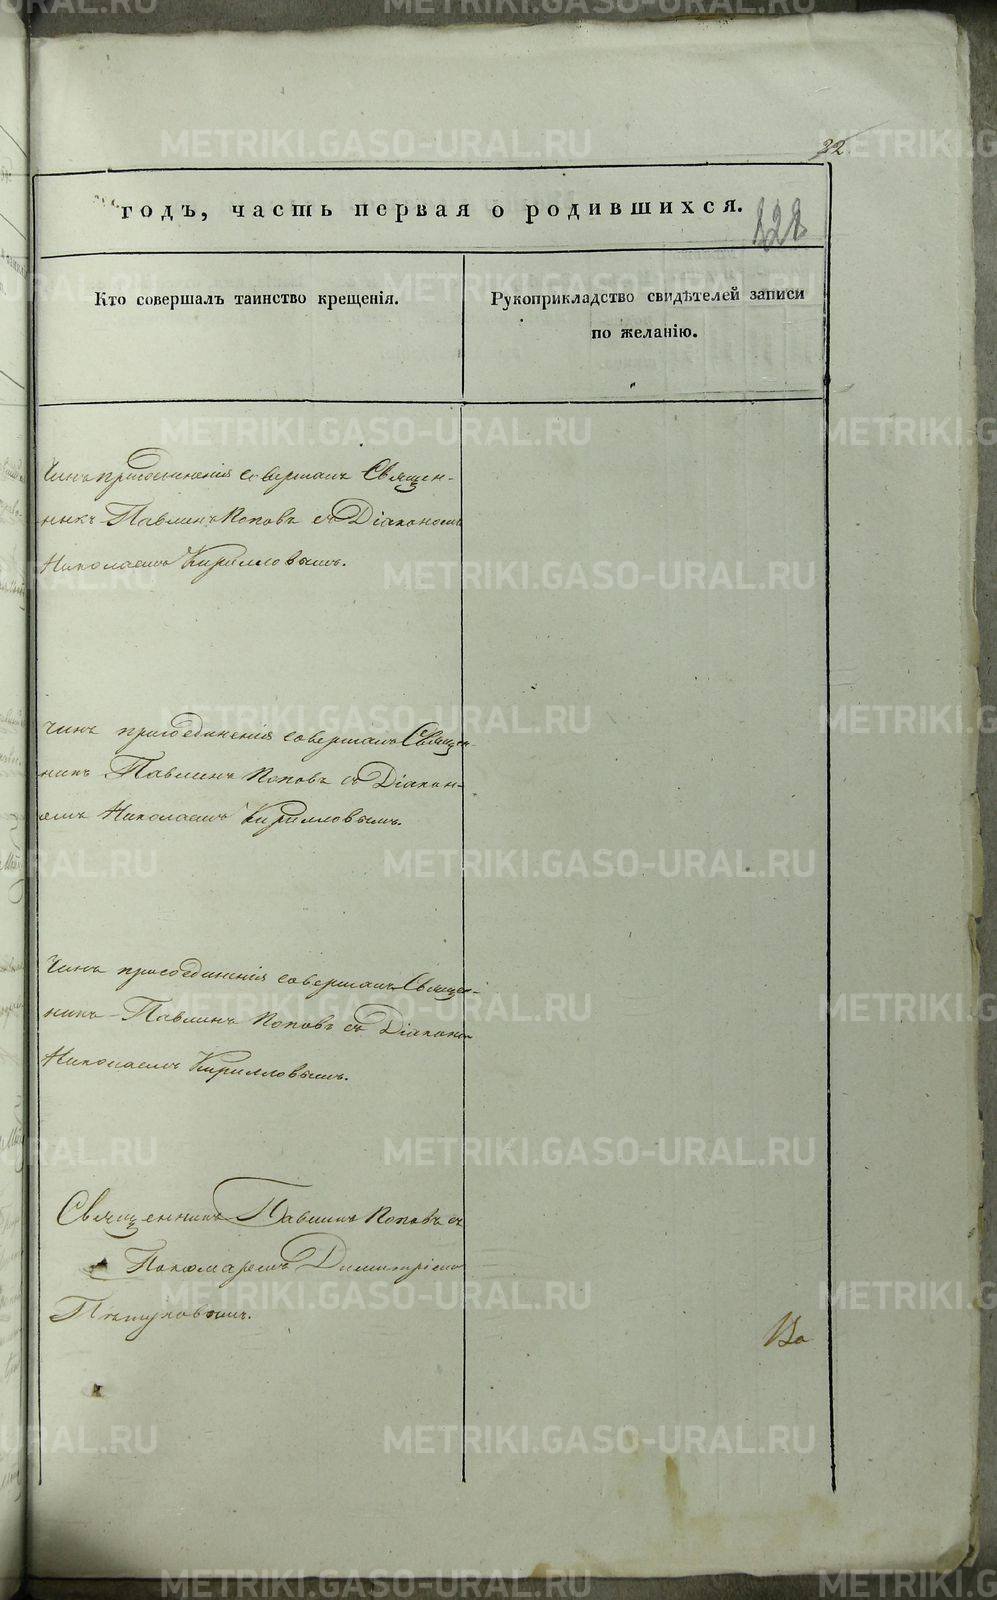 32
годъ, часть первая о родившихся.
Кто совершалъ таинство крещенія.
Рукоприкладство свидѣтелей записи
по желанію.
Чинъ присоединенія совершалъ Священ-
никъ Павлинъ Поповъ съ Діакономъ
Николаемъ Кирилловымъ.
Чинъ присоединенія совершалъ Священ-
никъ Павлинъ Поповъ съ Діакон-
омъ Николаемъ Кирилловымъ.
Чинъ присоединенія совершалъ Священ-
никъ Павлинъ Поповъ съ Діаконом
Николаемъ Кирилловымъ.
Священникъ Павлинъ Поповъ съ
Пономаремъ Димитріемъ
Пѣтуховымъ.
METRIKI.GASO-URAL.RU